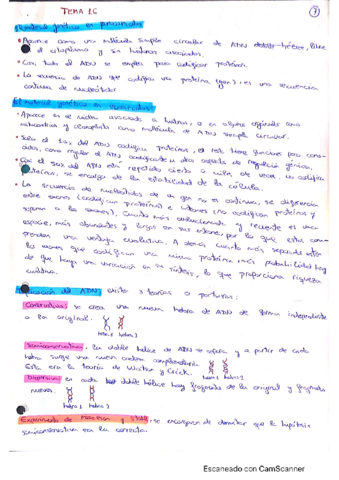 TEMA 16
7
El material genético en procariotas
• Aparece como una molécula simple circular de ADN doble hélice, libre
en el citoplasma y sin histonas asociadas.
• Casi todo el ADN se emplea para codificar proteínas.
• La secuencia de ADN que codifica una proteína (gen) es una secuencia
continua de nucleótidos.
El material genético en eucariotas
• Aparece en el núcleo asociado a histonas, o en algunos orgánulos como
mitocondrias y cloroplastos como molécula de ADN simple circular.
• Solo el del ADN codifica proteínas, el resto tiene funciones poco cono-
cidas, como regular el ADN codificante u otros aspectos de regulación génica.
• Gran parte del ADN está repetido cientos o miles de veces, no codifica
proteínas, se encarga de la estabilidad de la célula.
• La secuencia de nucleótidos de un gen no es continua, se diferencia
entre exones (codifican proteínas) e intrones (no codifican proteínas y
separan a los exones). Cuanto más evolucionada y reciente es una
especie, más abundantes y largos son sus intrones, por lo que estos com-
prenden una ventaja evolutiva. A demás cuanto más separados estén
los exones que codifican una misma proteína más probabilidad hay
de que haya una variación en su síntesis, lo que proporciona riqueza
evolutiva.
Replicación del ADN: existen 3 teorías o posturas:
Conservativa: se crea una nueva hebra de ADN de forma independiente
a la original.
hebra 1 hebra 2
Semiconservativa: la doble hélice de ADN se separa y a partir de cada
hebra surge una nueva cadena complementaria.
Esta era la teoría de Watson y Crick.
hebra 1 hebra 2
Dispersiva: en cada doble hélice hay fragmentos de la original y fragmentos
nuevos.
hebra 1 hebra 2
Experimento de Meselson y Stahl: se encargaron de demostrar que la hipótesis
semiconservativa era la correcta.
Escaneado con CamScanner